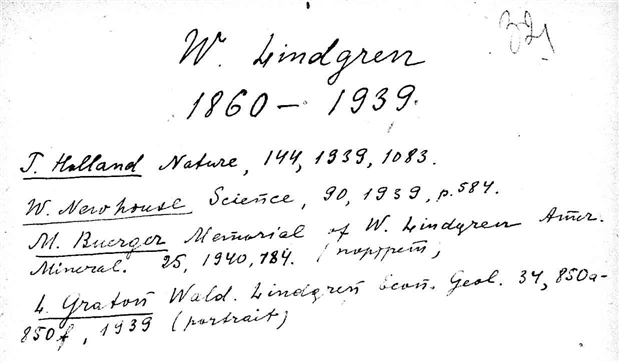 321
W. Lindgren
1860 – 1939.
T. Holland Nature, 144, 1939, 1083.
W. Newhouse Science, 90, 1939, p. 584.
M. Buerger Memorial of W. Lindgren Amer.
Mineral. 25, 1940, 184. (портрет)
L. Graton Wald. Lindgren Econ. Geol. 34, 850a-
850f, 1939 (portrait)